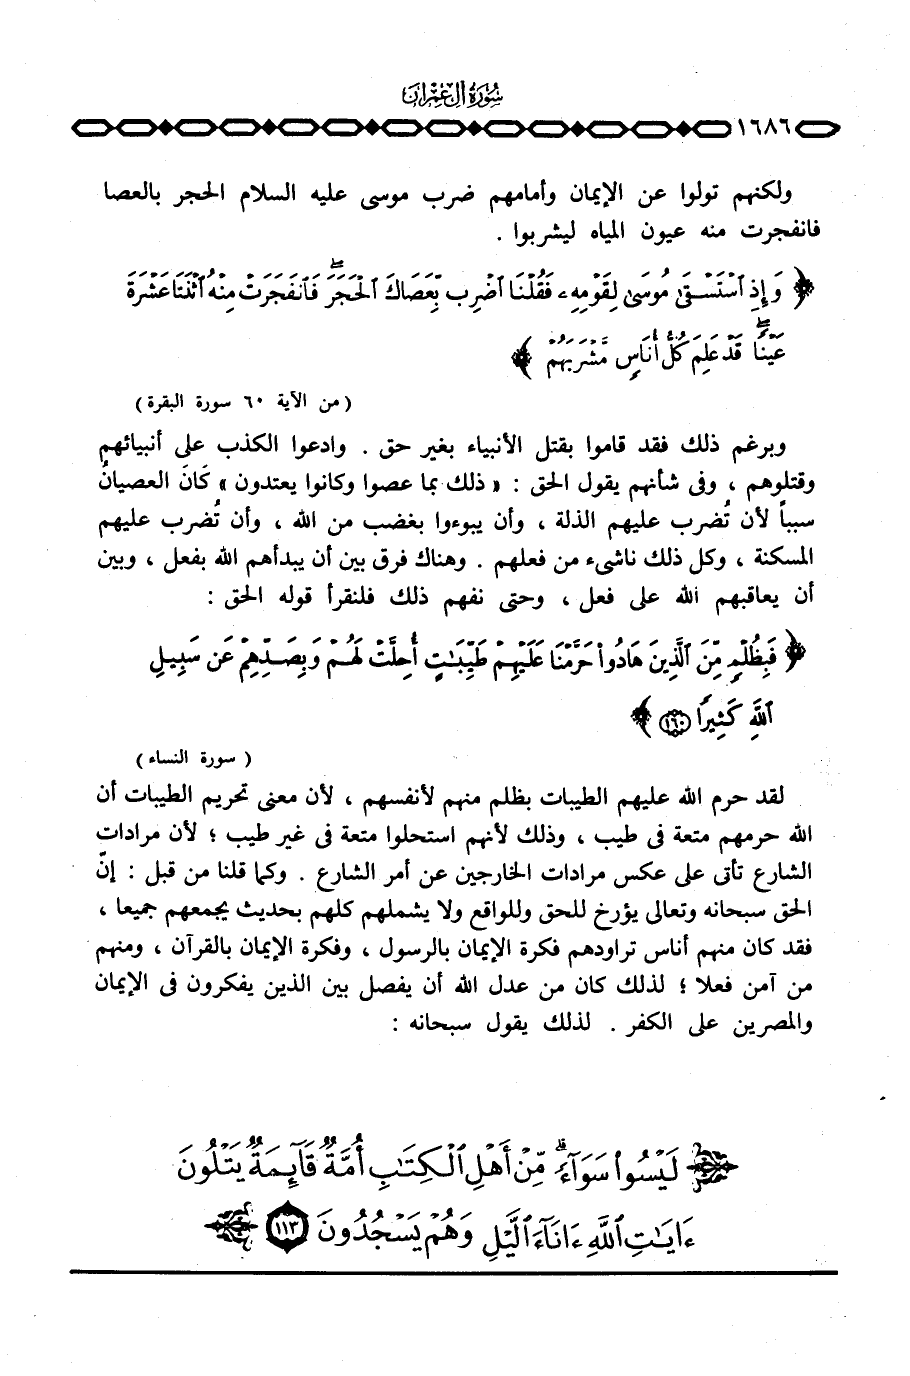 سُورَةُ آلِ عِمْرَانَ
١٦٨٦
ولكنهم تولوا عن الإيمان وأمامهم ضرب موسى عليه السلام الحجر بالعصا
فانفجرت منه عيون المياه ليشربوا .
﴿ وَإِذِ ٱسْتَسْقَىٰ مُوسَىٰ لِقَوْمِهِۦ فَقُلْنَا ٱضْرِب بِّعَصَاكَ ٱلْحَجَرَ ۖ فَٱنفَجَرَتْ مِنْهُ ٱثْنَتَا عَشْرَةَ
عَيْنًا ۖ قَدْ عَلِمَ كُلُّ أُنَاسٍ مَّشْرَبَهُمْ ﴾
( من الآية ٦٠ سورة البقرة )
وبرغم ذلك فقد قاموا بقتل الأنبياء بغير حق . وادعوا الكذب على أنبيائهم
وقتلوهم ، وفى شأنهم يقول الحق : « ذلك بما عصوا وكانوا يعتدون » كَانَ العصيانُ
سبباً لأن تُضرب عليهم الذلة ، وأن يبوءوا بغضب من الله ، وأن تُضرب عليهم
المسكنة ، وكل ذلك ناشىء من فعلهم . وهناك فرق بين أن يبدأهم الله بفعل ، وبين
أن يعاقبهم الله على فعل ، وحتى نفهم ذلك فلنقرأ قوله الحق :
﴿ فَبِظُلْمٍ مِّنَ ٱلَّذِينَ هَادُوا۟ حَرَّمْنَا عَلَيْهِمْ طَيِّبَٰتٍ أُحِلَّتْ لَهُمْ وَبِصَدِّهِمْ عَن سَبِيلِ
ٱللَّهِ كَثِيرًا ١٦٠ ﴾
( سورة النساء )
لقد حرم الله عليهم الطيبات بظلم منهم لأنفسهم ، لأن معنى تحريم الطيبات أن
الله حرمهم متعة فى طيب ، وذلك لأنهم استحلوا متعة فى غير طيب ؛ لأن مرادات
الشارع تأتى على عكس مرادات الخارجين عن أمر الشارع . وكما قلنا من قبل : إنّ
الحق سبحانه وتعالى يؤرخ للحق وللواقع ولا يشملهم كلهم بحديث يجمعهم جميعا ،
فقد كان منهم أناس تراودهم فكرة الإيمان بالرسول ، وفكرة الإيمان بالقرآن ، ومنهم
من آمن فعلا ؛ لذلك كان من عدل الله أن يفصل بين الذين يفكرون فى الإيمان
والمصرين على الكفر . لذلك يقول سبحانه :
﴿ لَيْسُوا۟ سَوَآءً ۗ مِّنْ أَهْلِ ٱلْكِتَٰبِ أُمَّةٌ قَآئِمَةٌ يَتْلُونَ
ءَايَٰتِ ٱللَّهِ ءَانَآءَ ٱلَّيْلِ وَهُمْ يَسْجُدُونَ ١١٣ ﴾